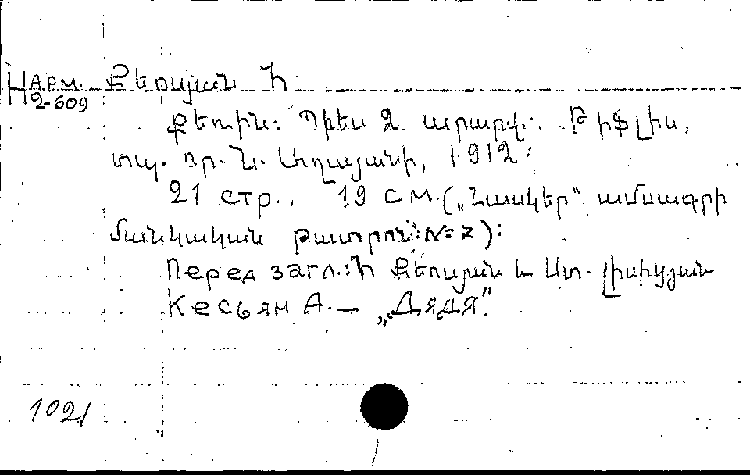 Нарм. Քեսյան Հ
2-609
Քեռին: Պիես 2 արարվ. Թիֆլիս,
տպ. Օր. Ն. Աղանյանի, 1912:
21 стр., 19 см. („Հասկեր“ ամսագրի
մանկական թատրոն: № 2):
Перед загл.: Հ Քեսյան և Ստ. Լիսիցյան
Кесьян А. — „Дядя“.
1021